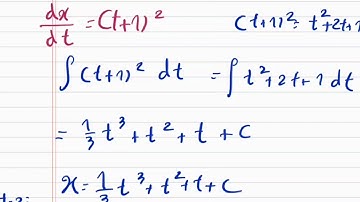 dx/dt = (t+1)²
(t+1)² = t²+2t+1
∫ (t+1)² dt = ∫ t²+2t+1 dt
= 1/3 t³ + t² + t + c
x = 1/3 t³ + t² + t + c